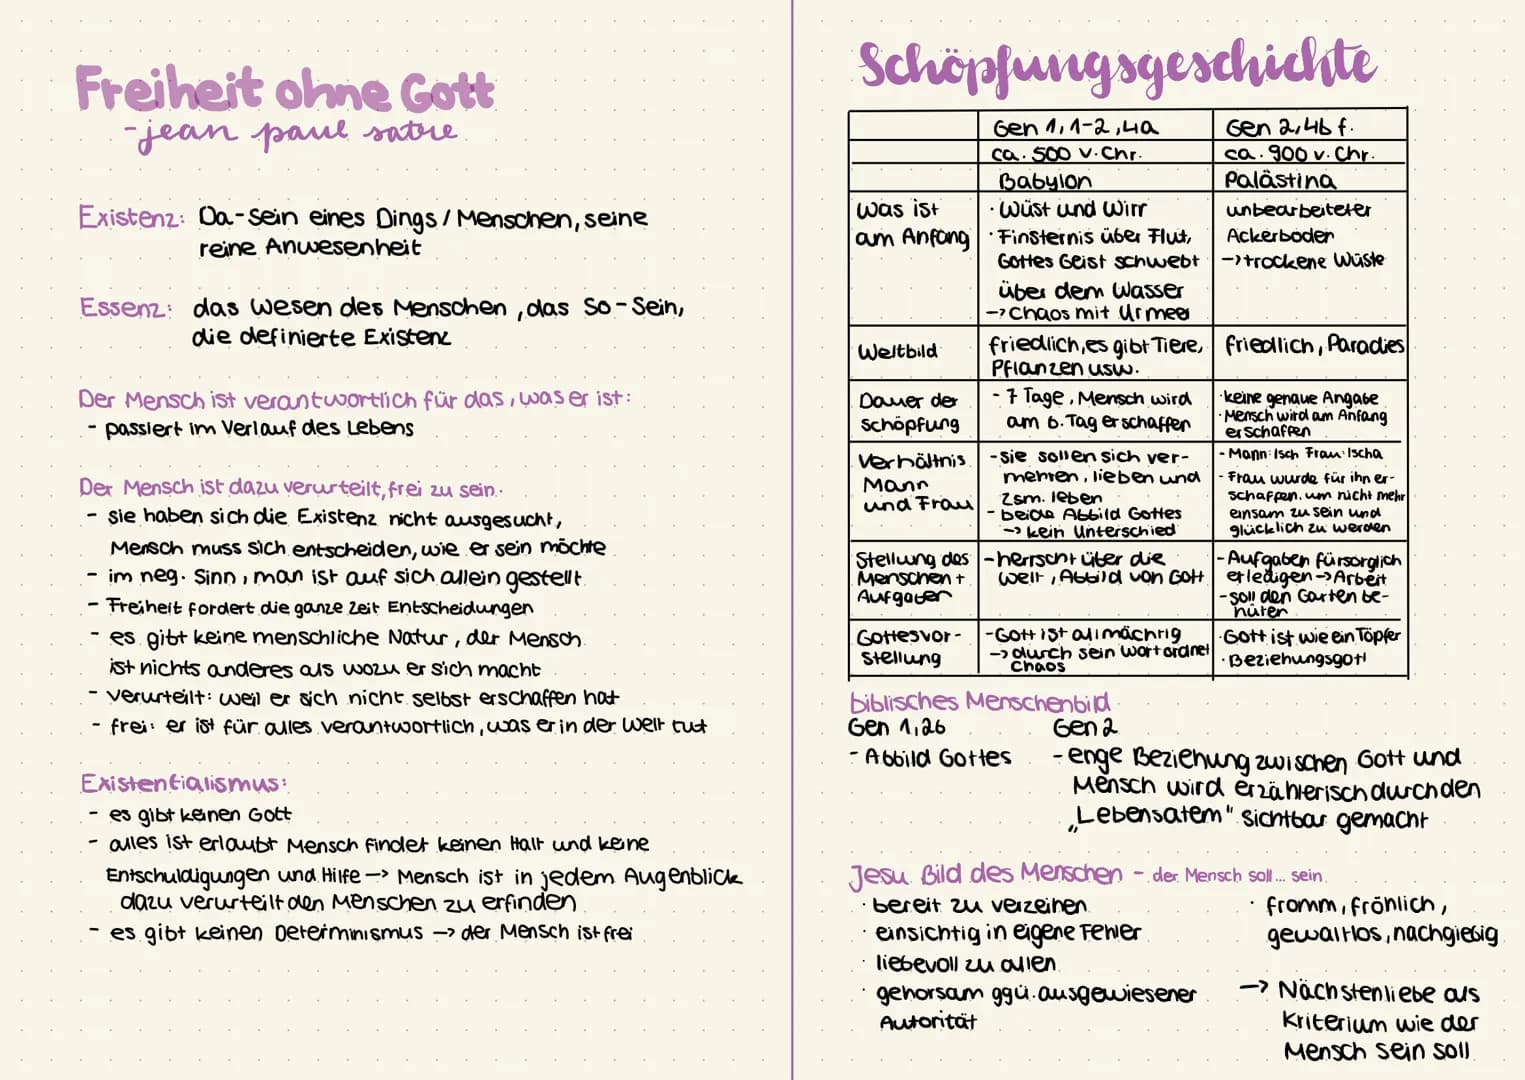 Freiheit ohne Gott
- jean paul satre
Existenz: Da-Sein eines Dings / Menschen, seine
reine Anwesenheit
Essenz: das Wesen des Menschen, das So-Sein,
die definierte Existenz
Der Mensch ist verantwortlich für das, was er ist:
- passiert im Verlauf des Lebens
Der Mensch ist dazu verurteilt, frei zu sein.
- sie haben sich die Existenz nicht ausgesucht,
Mensch muss sich entscheiden, wie er sein möchte
- im neg. Sinn, man ist auf sich allein gestellt
- Freiheit fordert die ganze Zeit Entscheidungen
- es gibt keine menschliche Natur, der Mensch
ist nichts anderes als wozu er sich macht
- verurteilt: weil er sich nicht selbst erschaffen hat
- frei: er ist für alles verantwortlich, was er in der Welt tut
Existentialismus:
- es gibt keinen Gott
- alles ist erlaubt Mensch findet keinen Halt und keine
Entschuldigungen und Hilfe -> Mensch ist in jedem Augenblick
dazu verurteilt den Menschen zu erfinden
- es gibt keinen Determinismus -> der Mensch ist frei
Schöpfungsgeschichte
Gen 1,1-2,4a
Gen 2,4b f.
ca. 500 v. Chr.
ca. 900 v. Chr.
Babylon
Palästina
Was ist
am Anfang
· Wüst und Wirr
· Finsternis über Flut,
Gottes Geist schwebt
über dem Wasser
-> Chaos mit Urmeer
unbearbeiteter
Ackerboden
-> trockene Wüste
Weltbild
friedlich, es gibt Tiere,
Pflanzen usw.
friedlich, Paradies
Dauer der
Schöpfung
- 7 Tage, Mensch wird
am 6. Tag erschaffen
· keine genaue Angabe
· Mensch wird am Anfang
erschaffen
Verhältnis
Mann
und Frau
- sie sollen sich ver-
mehren, lieben und
zsm. leben
- beide Abbild Gottes
-> kein Unterschied
- Mann: Isch Frau: Ischa
- Frau wurde für ihn er-
schaffen, um nicht mehr
einsam zu sein und
glücklich zu werden
Stellung des
Menschen +
Aufgaben
- herrscht über die
Welt, Abbild von Gott
- Aufgaben fürsorglich
erledigen -> Arbeit
- soll den Garten be-
hüten
Gottesvor-
stellung
- Gott ist allmächtig
-> durch sein Wort ordnet
Chaos
· Gott ist wie ein Töpfer
· Beziehungsgott
biblisches Menschenbild
Gen 1,26
- Abbild Gottes
Gen 2
- enge Beziehung zwischen Gott und
Mensch wird erzählerisch durch den
„Lebensatem" sichtbar gemacht
Jesu Bild des Menschen - der Mensch soll... sein
· bereit zu verzeihen
· einsichtig in eigene Fehler
· liebevoll zu allen
· gehorsam ggü. ausgewiesener
Autorität
· fromm, fröhlich,
gewaltlos, nachgiebig
-> Nächstenliebe als
Kriterium wie der
Mensch sein soll